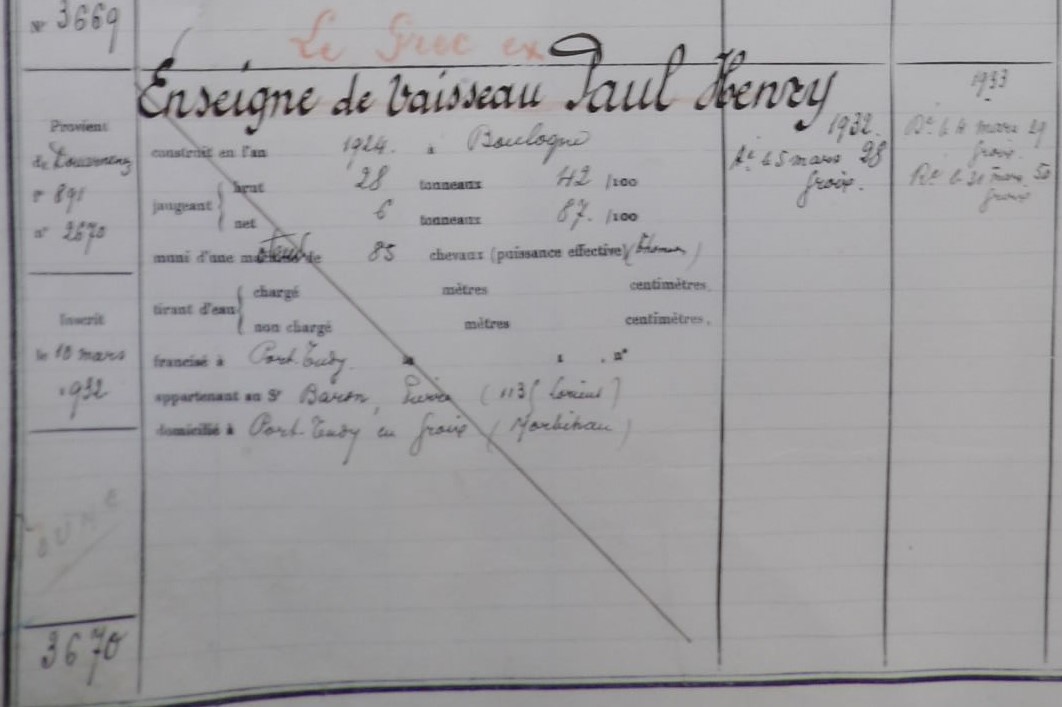 N° 3669
Le Gruc ex
Enseigne de Vaisseau Paul Henry
Provient
de Douarnenez
f° 891
n° 2670
Inscrit
le 10 mars
1932
3670
construit en l'an 1924 à Boulogne
jaugeant brut 28 tonneaux 42 /100
net 6 tonneaux 87 /100
muni d'une de 85 chevaux (puissance effective)
tirant d'eau chargé mètres centimètres.
non chargé mètres centimètres.
francisé à Port-Tudy le n°
appartenant au Sr Baron, Pierre (1135 Lorient)
domicilié à Port-Tudy en Groix (Morbihan)
1932.
At le 5 mars 28
Groix.
1933
Dt le 4 mars 29
Groix.
Rt le 31 mars 50
Groix